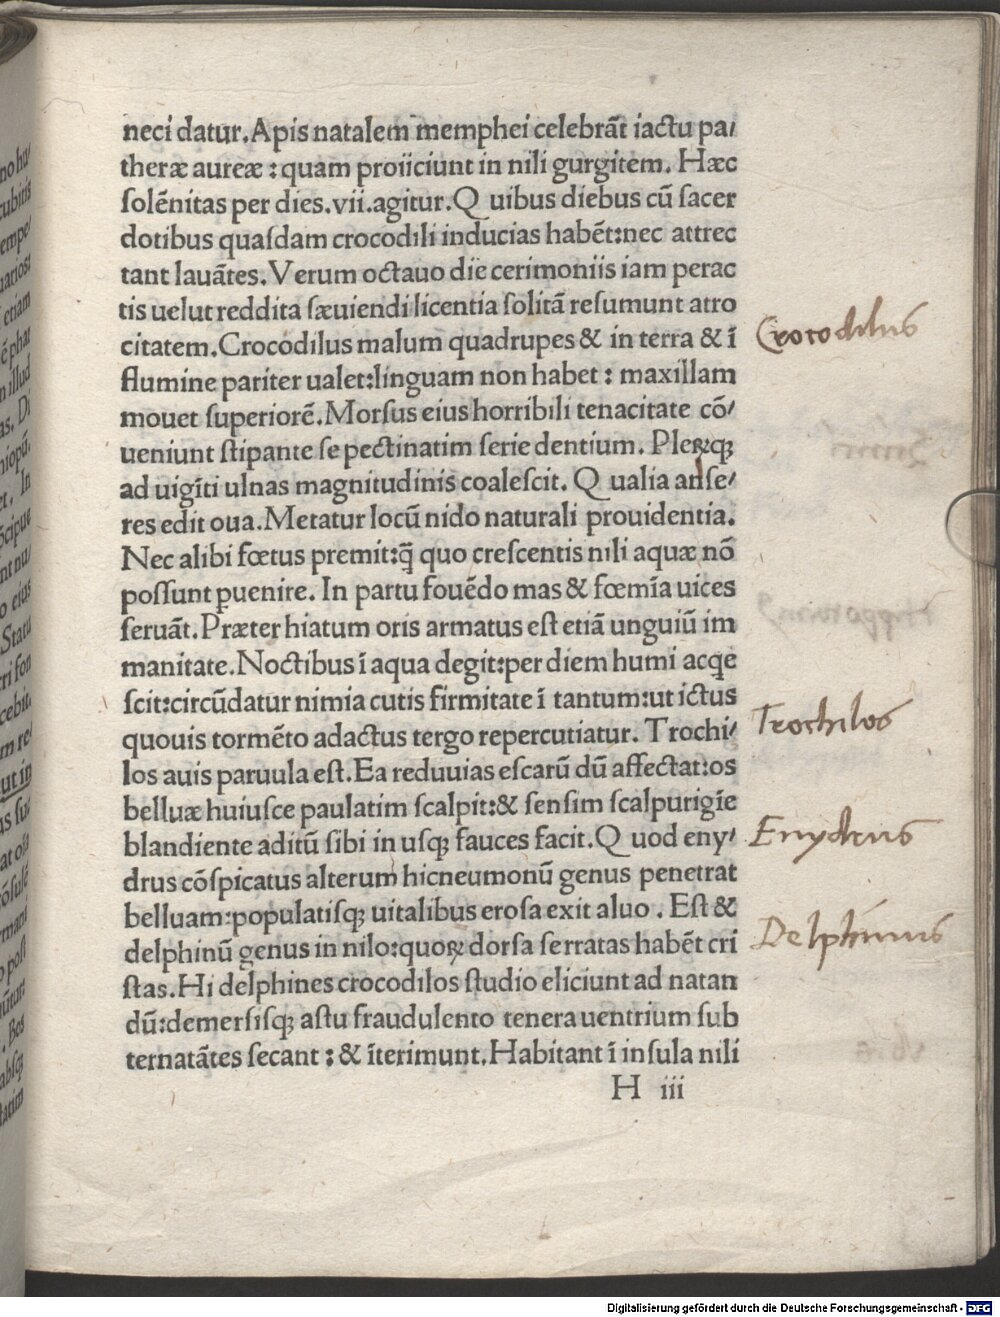 neci datur. Apis natalem memphei celebrãt iactu pa/
theræ aureæ : quam proiiciunt in nili gurgitem. Hæc
ſolẽnitas per dies.vii.agitur. Q uibus diebus cũ ſacer
dotibus quaſdam crocodili inducias habẽt:nec attrec
tant lauãtes. Verum octauo die cerimoniis iam perac
tis uelut reddita ſæuiendi licentia ſolitã reſumunt atro
citatem. Crocodilus malum quadrupes & in terra & ĩ
flumine pariter ualet:linguam non habet : maxillam
mouet ſuperiorẽ. Morſus eius horribili tenacitate cõ/
ueniunt ſtipante ſe pectinatim ſerie dentium. Pleꝝqꝫ
ad uigĩti ulnas magnitudinis coaleſcit. Q ualia anſe/
res edit oua. Metatur locũ nido naturali prouidentia.
Nec alibi fœtus premit:q̃ quo creſcentis nili aquæ nõ
poſſunt ꝑuenire. In partu fouẽdo mas & fœmĩa uices
ſeruãt. Præter hiatum oris armatus eſt etiã unguiũ im
manitate. Noctibus ĩ aqua degit:per diem humi acq̃e
ſcit:circũdatur nimia cutis firmitate ĩ tantum:ut ictus
quouis tormẽto adactus tergo repercutiatur. Trochi/
los auis paruula eſt. Ea reduuias eſcarũ dũ affectat:os
belluæ huiuſce paulatim ſcalpit:& ſenſim ſcalpurigĩe
blandiente aditũ ſibi in uſqꝫ fauces facit. Q uod eny/
drus cõſpicatus alterum hicneumonũ genus penetrat
belluam:populatiſqꝫ uitalibus eroſa exit aluo . Eſt &
delphinũ genus in nilo:quoꝝ dorſa ſerratas habẽt cri
ſtas. Hi delphines crocodilos ſtudio eliciunt ad natan
dũ:demerſiſqꝫ aſtu fraudulento tenera uentrium ſub
ternatãtes ſecant : & ĩterimunt. Habitant ĩ inſula nili
H iii
Crocodilus
Trochilos
Enydrus
Delphinus
Digitalisierung gefördert durch die Deutsche Forschungsgemeinschaft - DFG